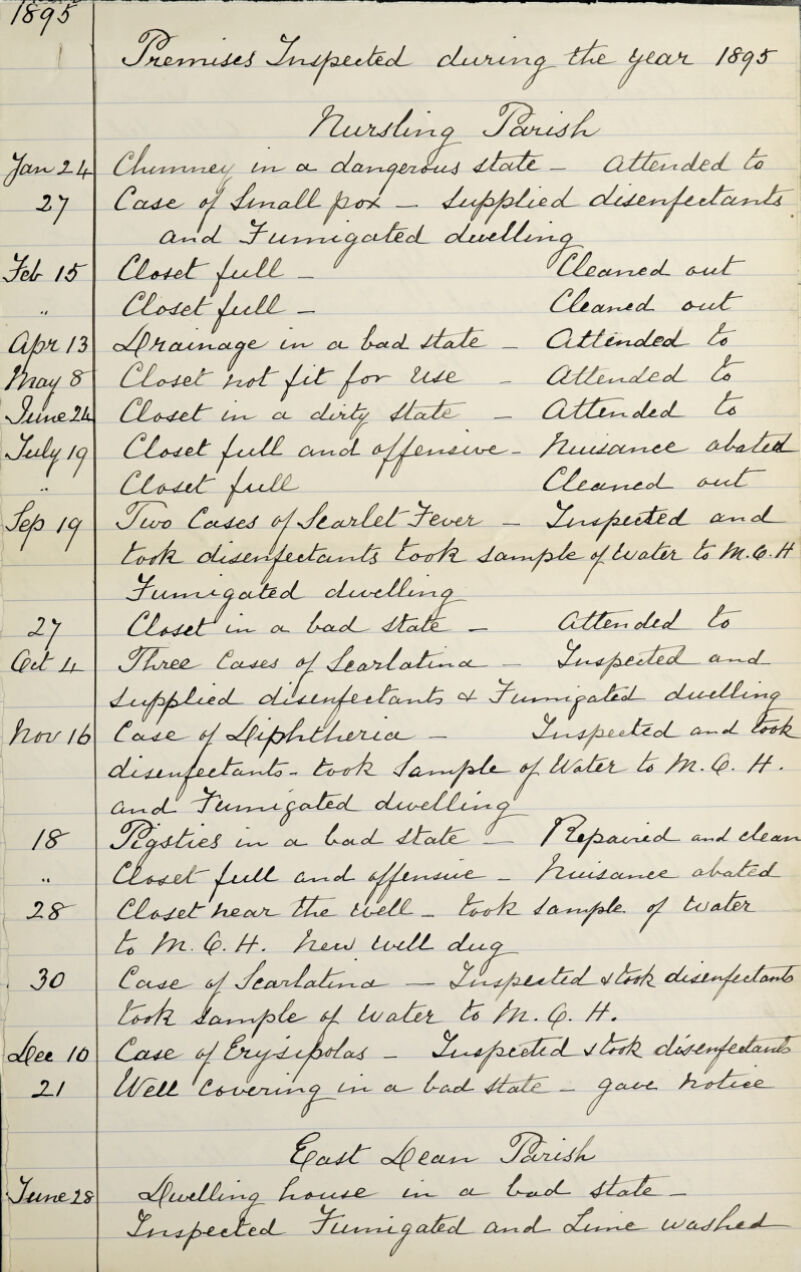 1895
Premises Inspected during the year 1895
Nursling Parish
Jan 24 Chimney in a dangerous state – Attended to
27 Case of Small pox – Supplied disenfectants
and Fumigated dwelling
Feb 15 Closet full – Cleaned out
" Closet full – Cleaned out
Apr 13 Drainage in a bad state – Attended to
May 8 Closet not fit for use – Attended to
June 24 Closet in a dirty state – Attended to
July 19 Closet full and offensive – Nuisance abated
" Closet full Cleaned out
Sep 19 Two Cases of Scarlet Fever – Inspected and
took disenfectants took sample of water to M.O.H
Fumigated dwelling
27 Closet in a bad state – Attended to
Oct 4 Three Cases of Scarlatina – Inspected and
supplied disenfectants & Fumigated dwelling
Nov 16 Case of Diphtheria – Inspected and took
disenfectants – took Sample of Water to M.O.H.
and Fumigated dwelling
18 Pigsties in a bad state – Repaired and clean
" Closet full and offensive – Nuisance abated
28 Closet near the well – took sample of water
to M.O.H. New well dug
30 Case of Scarlatina – Inspected & took disenfectants
took sample of water to M.O.H.
Dec 10 Case of Erysipolas – Inspected & took disenfectants
21 Well covering in a bad state – gave notice
East Dean Parish
June 28 Dwelling house in a bad state –
Inspected Fumigated and Lime washed